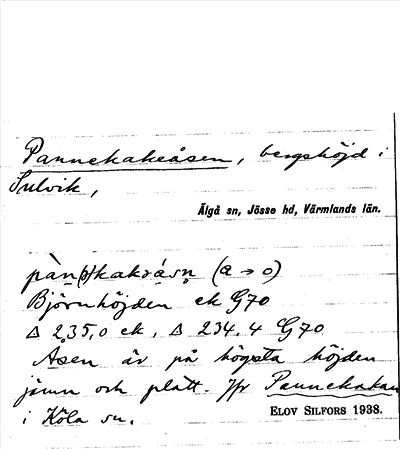 Pannekakeåsen, bergshöjd i
Sulvik,
Älgå sn, Jösse hd, Värmlands län.
pàn(ə)kakəá̊sn̥ (a → o)
Björnhöjden ek G70
Δ 235,0 ek, Δ 234.4 G70
Åsen är på högsta höjden
jämn och platt. Jfr Pannekakan
i Köla sn.
ELOV SILFORS 1938.